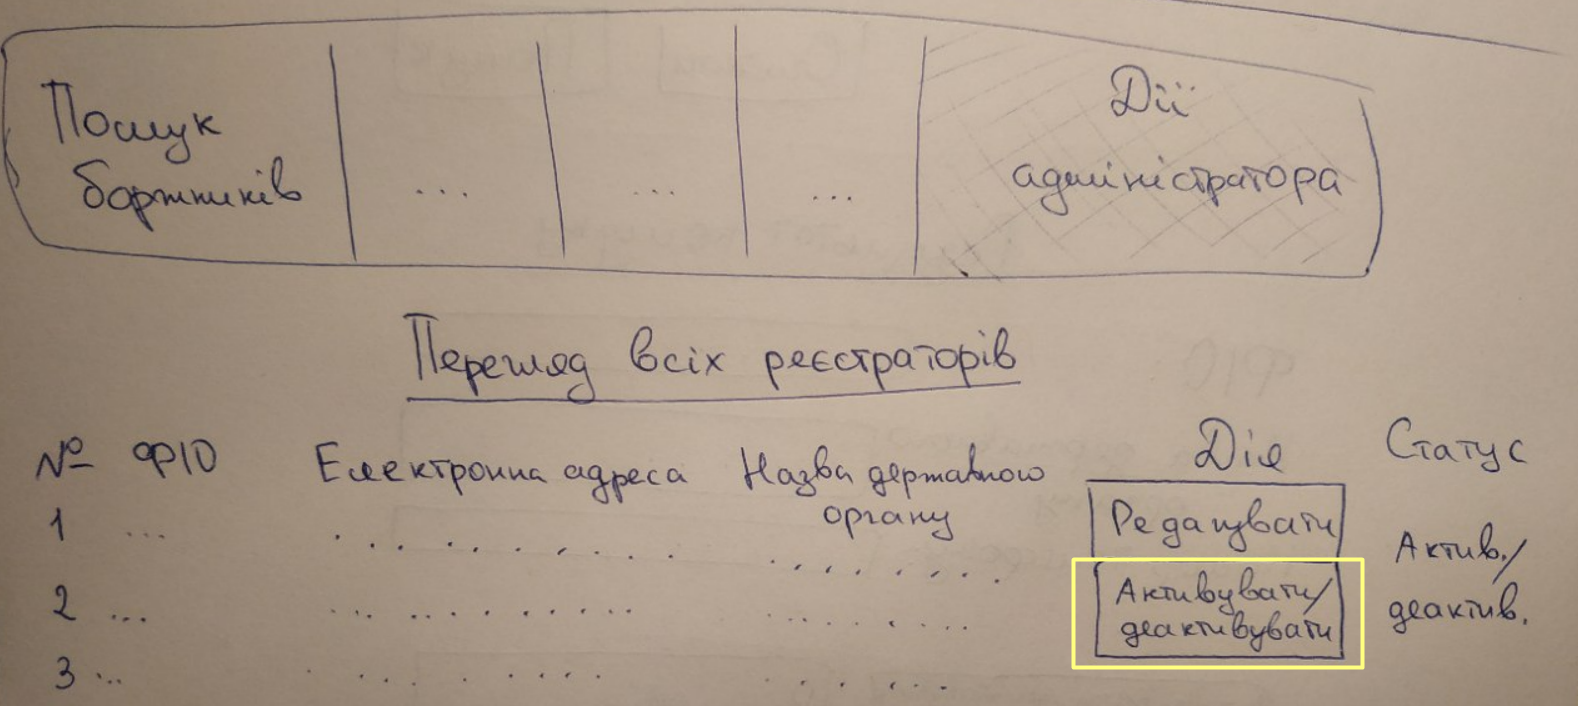 Пошук
боржників
...
...
...
Дії
адміністратора
Перегляд всіх реєстраторів
№ ФІО Електронна адреса Назва державного органу Дія Статус
1 ... . . . . . . . . . . . . . . . . . . Редагувати Актив./
2 ... ... . . . . . . . . . . . . . . . . Активувати/ деактив.
деактивувати
3 ... . . . . . . . . . . . . . .